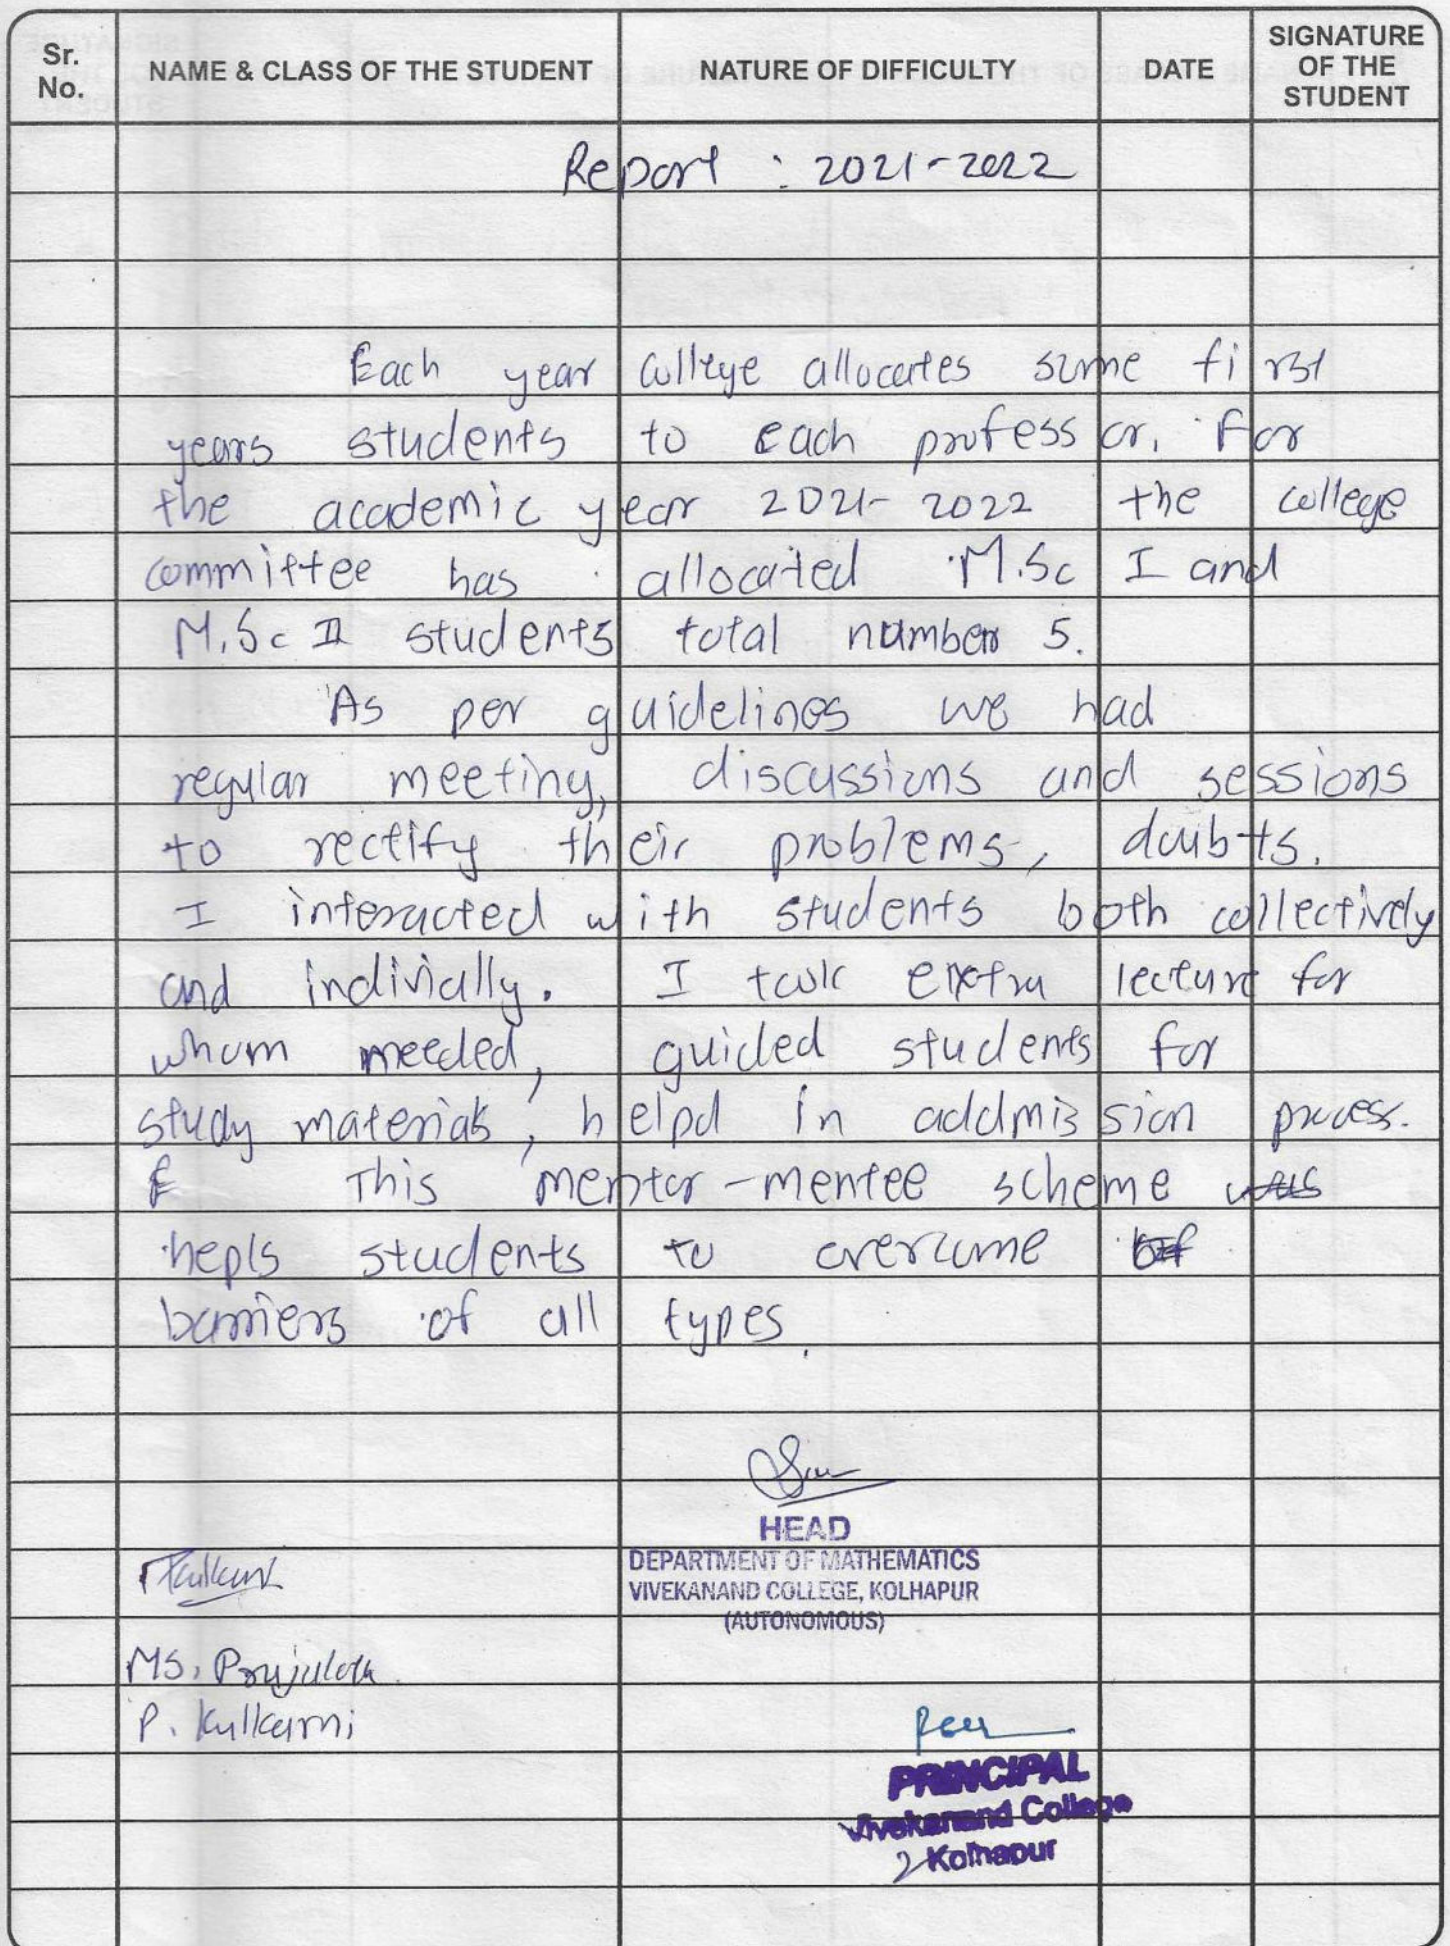 Sr. No. NAME & CLASS OF THE STUDENT NATURE OF DIFFICULTY DATE SIGNATURE OF THE STUDENT
Report : 2021-2022
Each year college allocates some first
years students to each professor. For
the academic year 2021-2022 the college
committee has allocated M.Sc I and
M.Sc II students total number 5.
As per guidelines we had
regular meeting, discussions and sessions
to rectify their problems, doubts.
I interacted with students both collectively
and individally. I took extra lecture for
whom needed, guided students for
study materials, helpd in addmission process.
This mentor-mentee scheme
hepls students to overcome
barriers of all types.
HEAD
DEPARTMENT OF MATHEMATICS
VIVEKANAND COLLEGE, KOLHAPUR
(AUTONOMOUS)
PKulkarni
Ms. Prajakta
P. Kulkarni
PRINCIPAL
Vivekanand College
Kolhapur